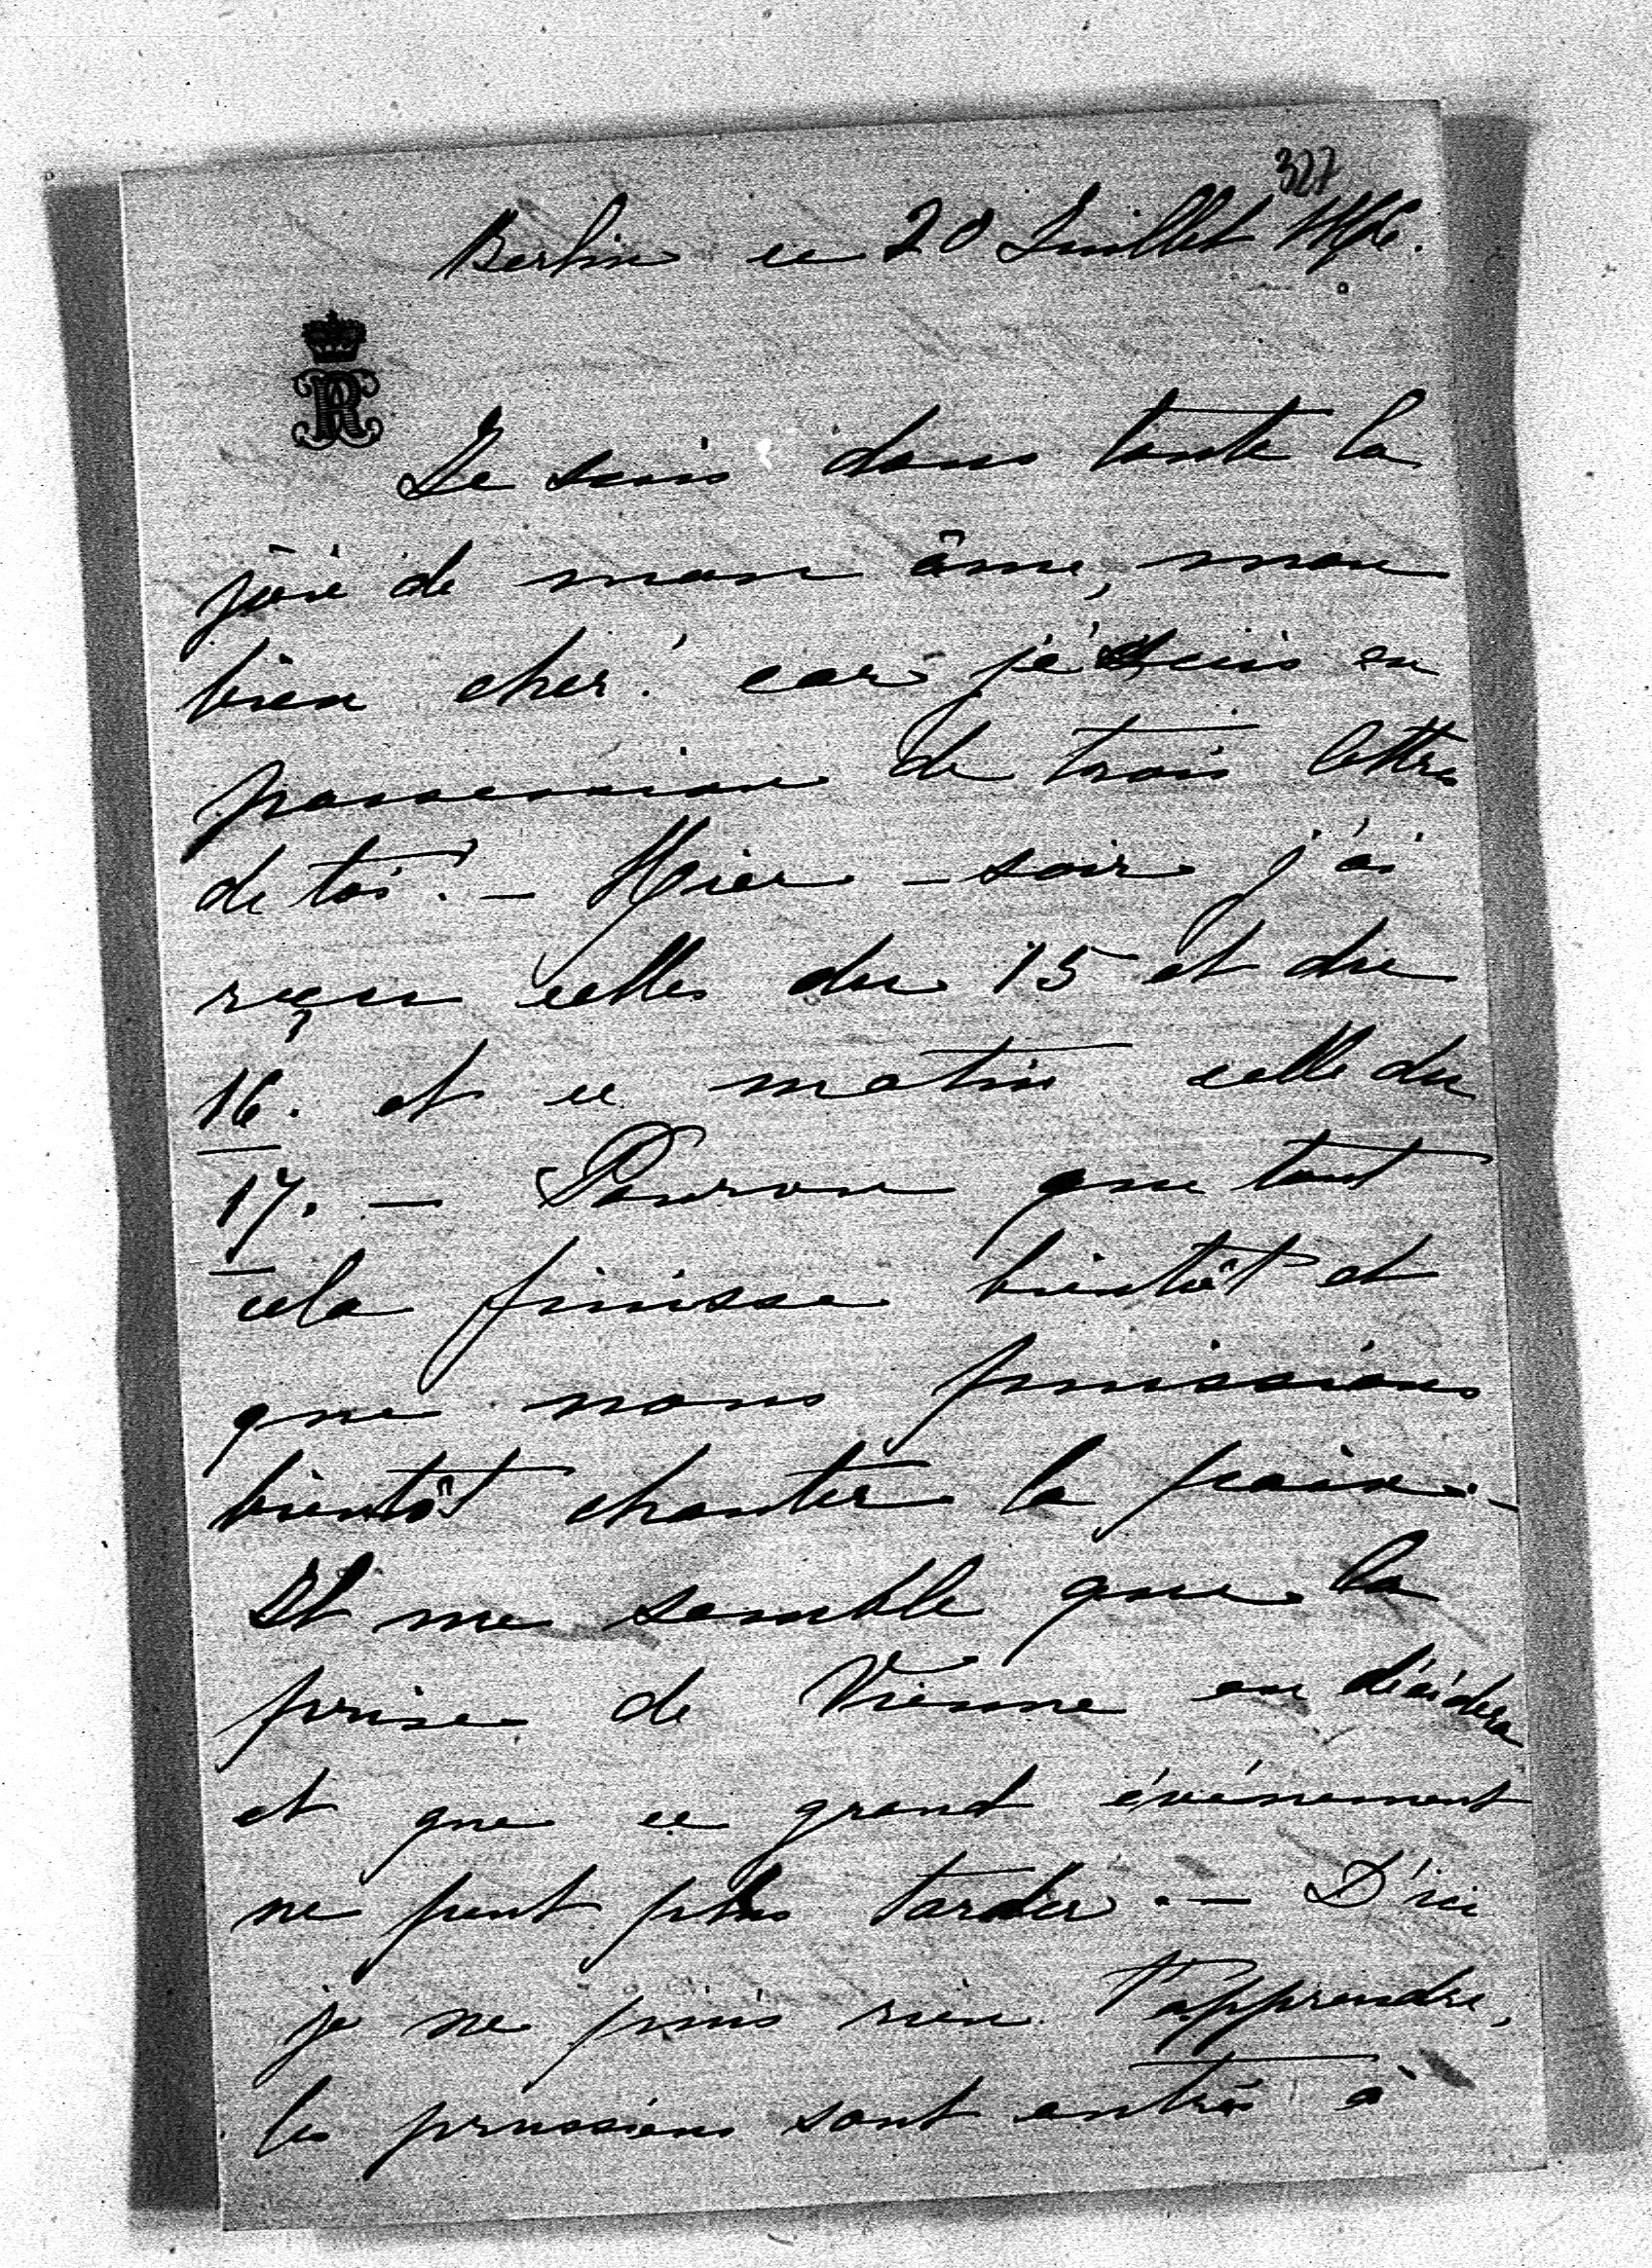 327
Berlin ce 20 Juillet 1866.
R
Je suis dans toute la
joie de mon âme, mon
bien cher! car je suis en
possession de trois lettres
de toi! – Hier-soir j'ai
reçu celles du 15 et du
16. et ce matin celle du
17. – Pourvu que tout
cela finisse bientôt et
que nous puissions
bientôt chanter la paix. –
Il me semble que la
prise de Vienne en décidera
et que ce grand événement
ne peut plus tarder. – D'ici
je ne puis rien t'apprendre,
les prussiens sont entrés à